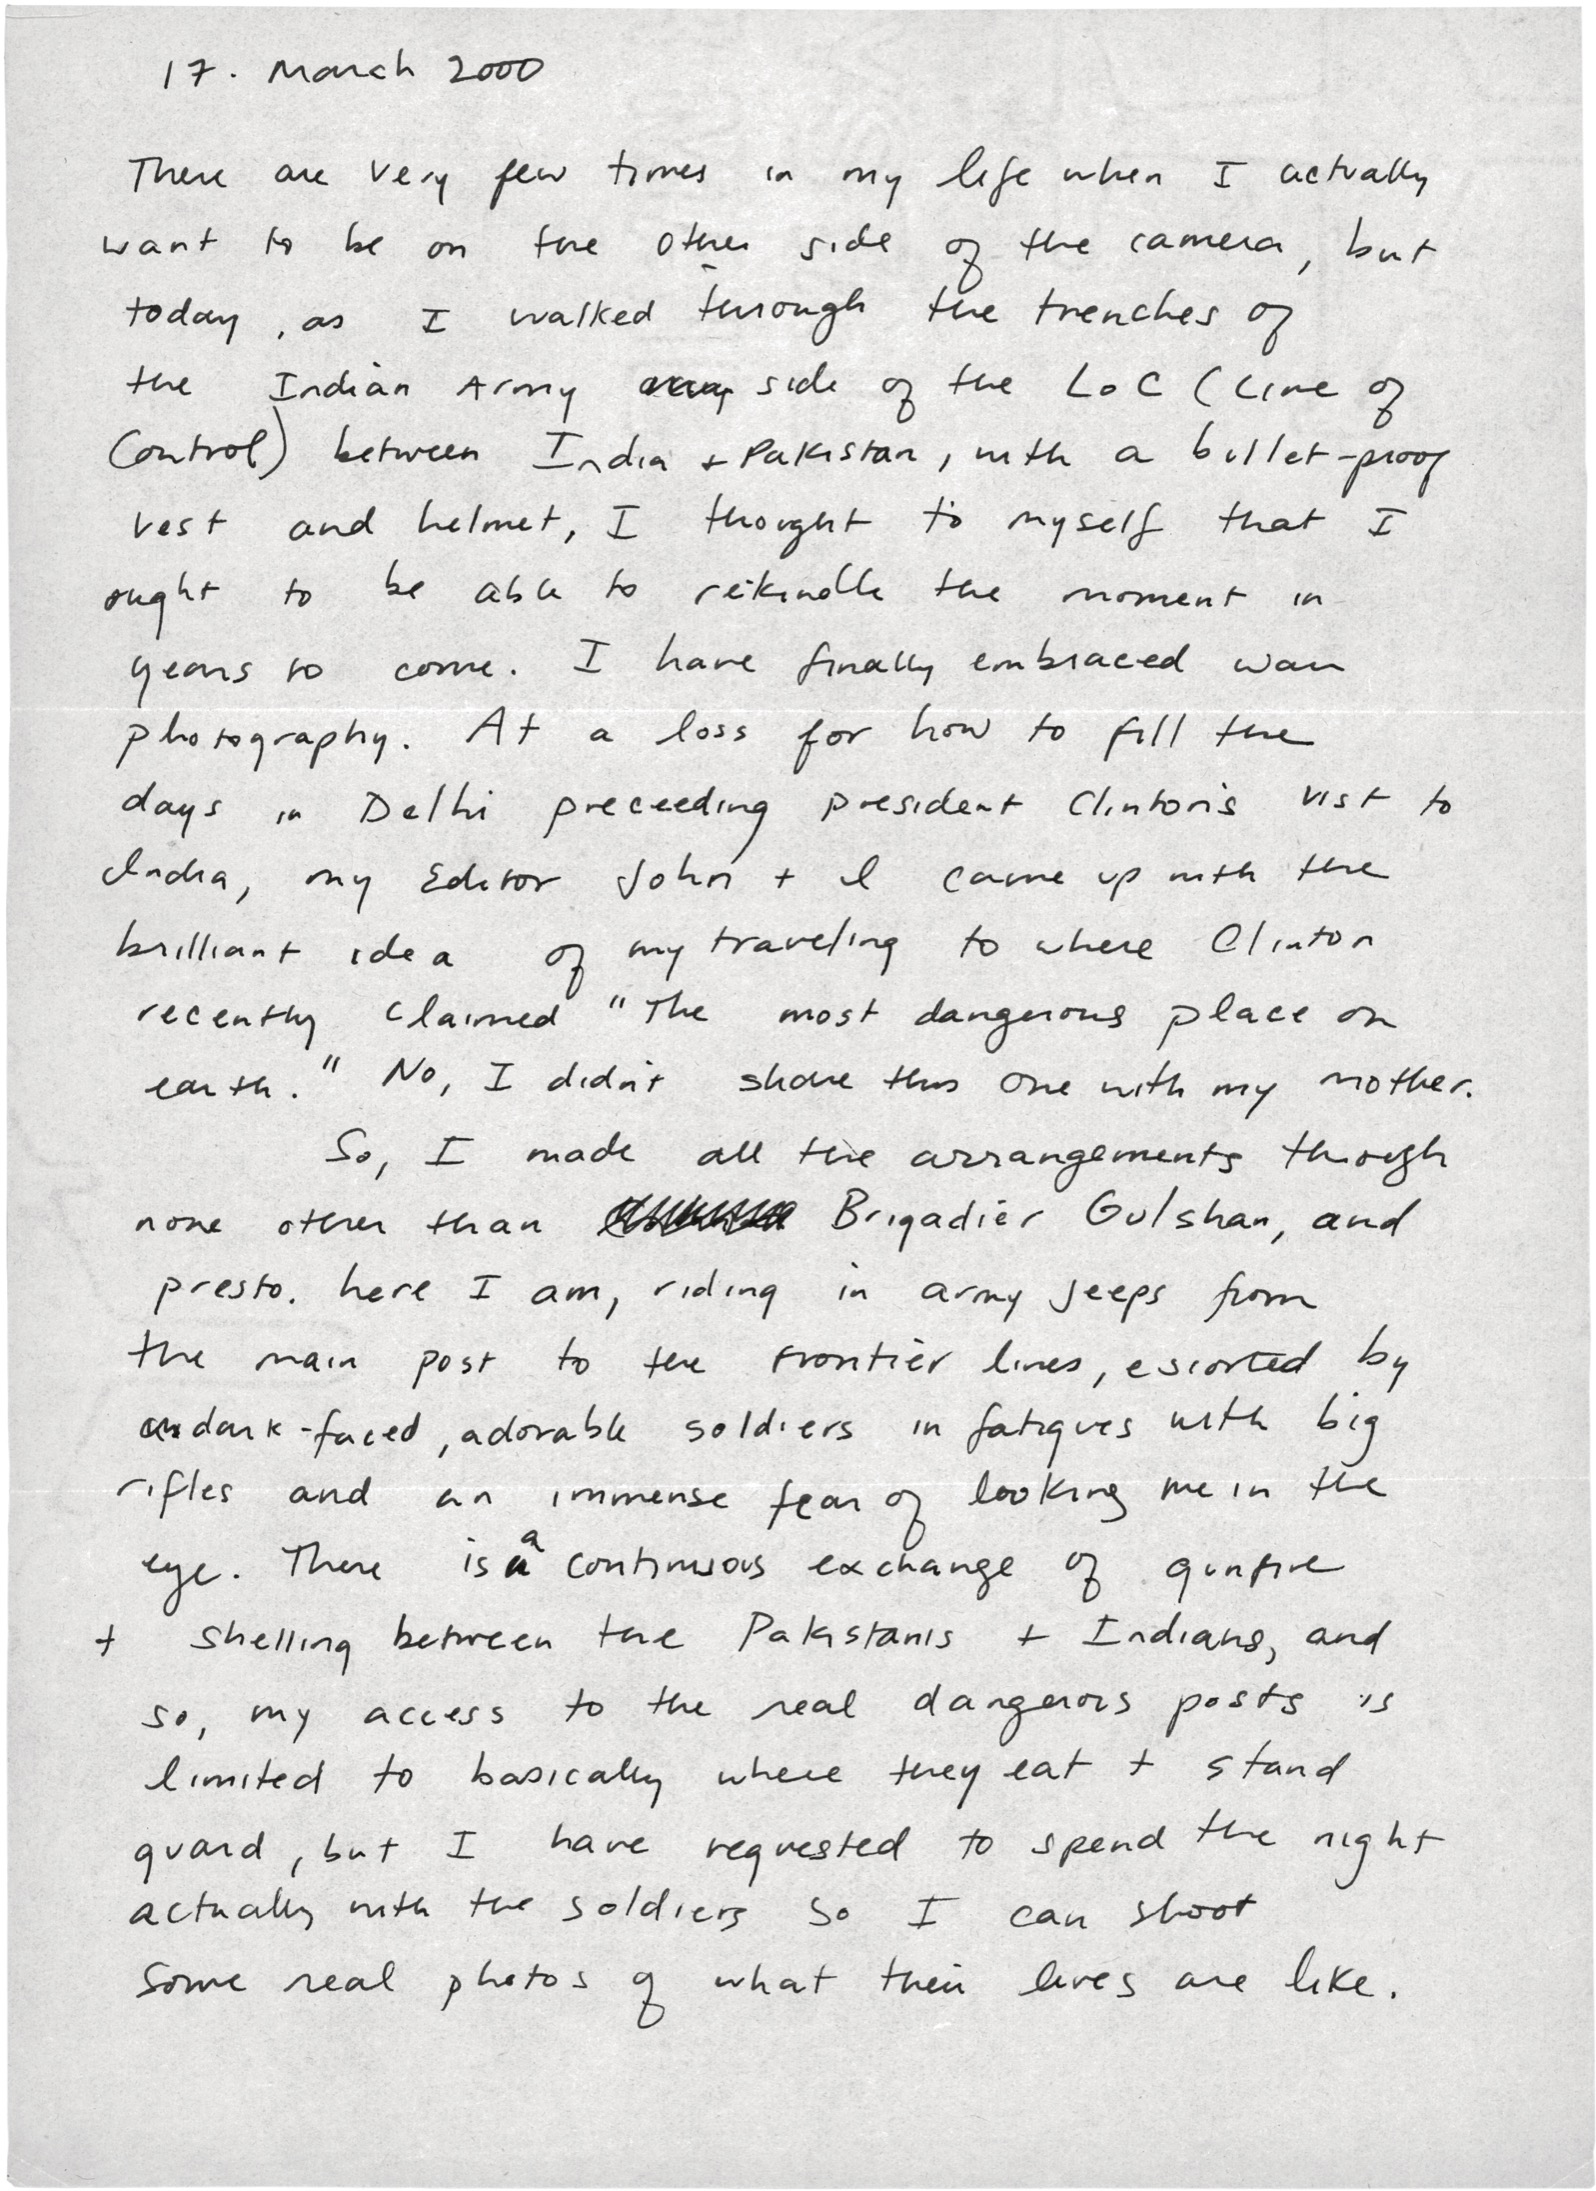 17. March 2000
There are very few times in my life when I actually
want to be on the other side of the camera, but
today, as I walked through the trenches of
the Indian Army side of the LoC (Line of
Control) between India + Pakistan, with a bullet-proof
vest and helmet, I thought to myself that I
ought to be able to rekindle the moment in
years to come. I have finally embraced war
photography. At a loss for how to fill the
days in Delhi preceeding president Clinton's vist to
India, my Editor John + I came up with the
brilliant idea of my traveling to where Clinton
recently claimed "The most dangerous place on
earth." No, I didn't share this one with my mother.
So, I made all the arrangements through
none other than Brigadier Gulshan, and
presto. here I am, riding in army jeeps from
the main post to the frontier lines, escorted by
dark-faced, adorable soldiers in fatigues with big
rifles and an immense fear of looking me in the
eye. There is a continuous exchange of gunfire
+ shelling between the Pakistanis + Indians, and
so, my access to the real dangerous posts is
limited to basically where they eat + stand
guard, but I have requested to spend the night
actually with the soldiers so I can shoot
some real photos of what their lives are like.